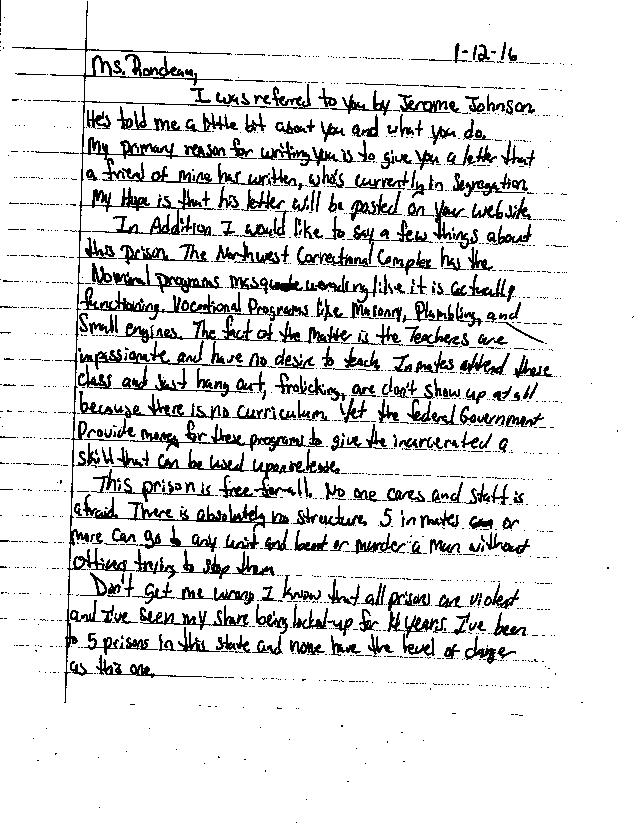 1-12-16
Ms. Rondeau,
I was referred to you by Jerome Johnson.
He's told me a little bit about you and what you do.
My primary reason for writing you is to give you a letter that
a friend of mine has written, who's currently in Segregation.
My Hope is that his letter will be posted on your website.
In Addition I would like to say a few things about
this prison. The Northwest Correctional Complex has the
Nominal programs like it is actually
functioning. Vocational Programs like Masonry, Plumbling, and
Small engines. The fact of the Matter is the Teachers are
impassionate and have no desire to teach. Inmates attend these
class and just hang out, frolicking, are don't show up at all
because there is no curriculum. Yet the federal Government
Provide money for these programs to give the incarcerated a
skill that can be used upon release.
This prison is free-for-all. No one cares and staff is
afraid. There is absolutely no structure. 5 inmates or
more can go to any unit and beat or murder a man without
trying to stop them
Don't get me wrong I know that all prisons are violent
and I've seen my share being locked-up for years. I've been
to 5 prisons in this state and none have the level of danger
as this one.